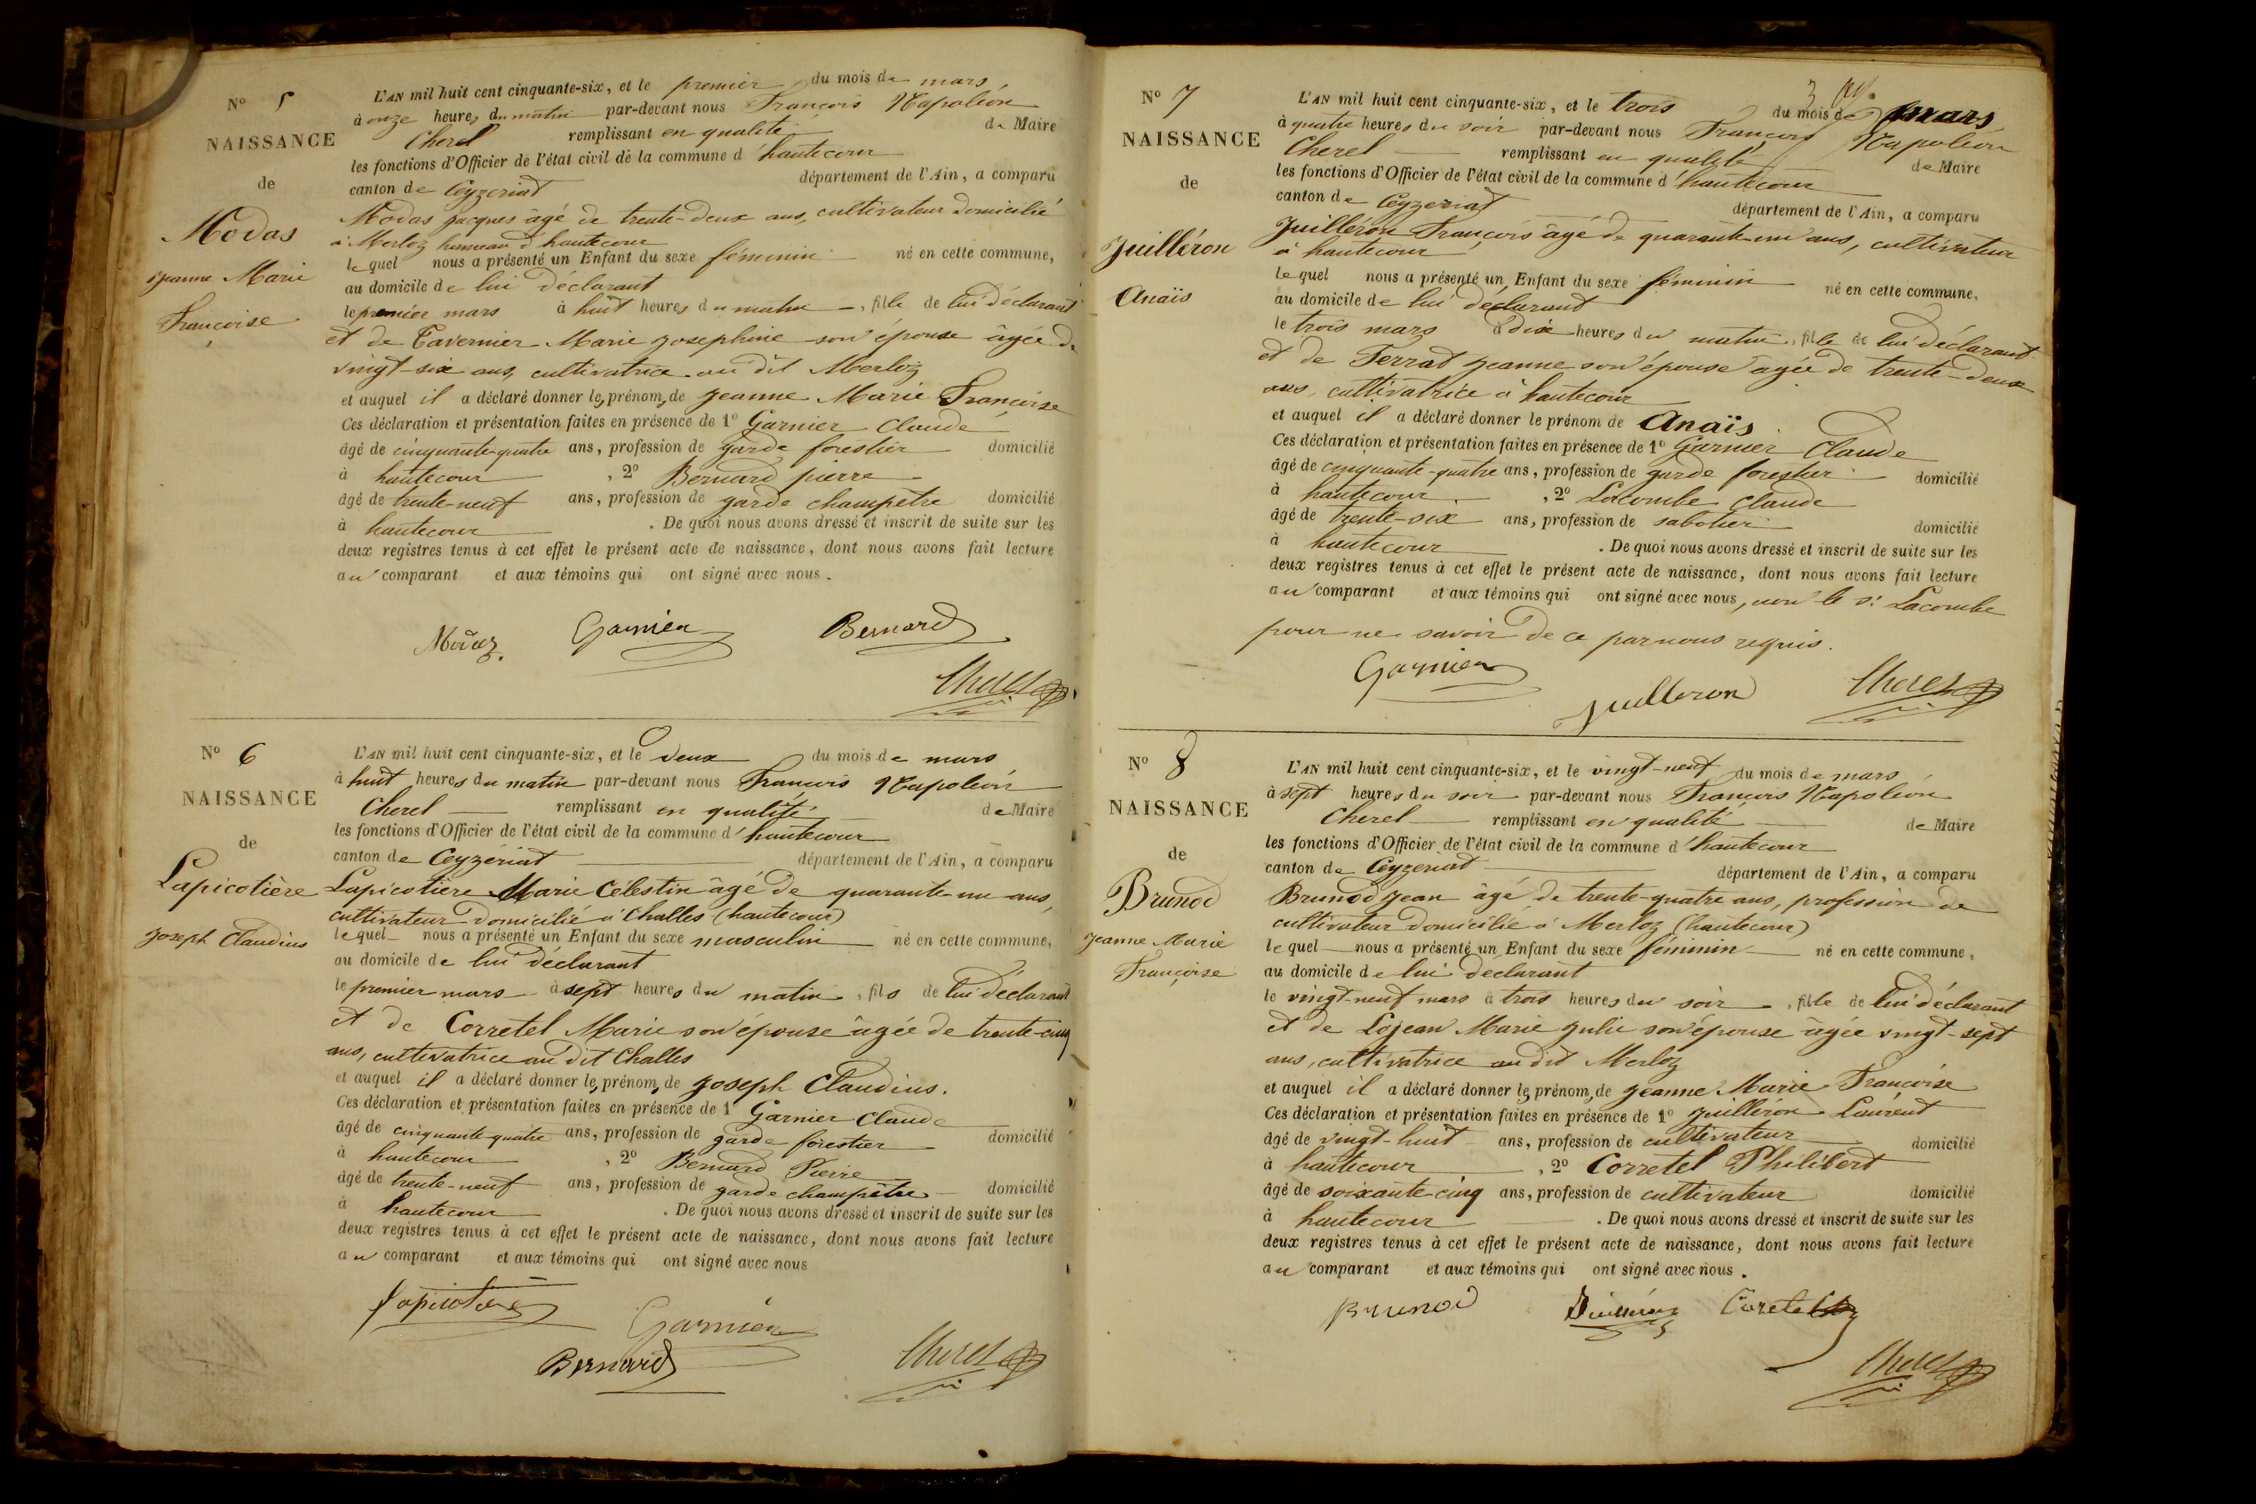 N° 5
NAISSANCE
de
Modas
Jeanne Marie
Françoise
L'AN mil huit cent cinquante-six, et le premier du mois de mars
à onze heures du matin par-devant nous François Napoléon
Cherel remplissant en qualité de Maire
les fonctions d'Officier de l'état civil de la commune d'hautecour
canton de Ceyzeriat département de l'Ain, a comparu
Modas Jacques âgé de trente-deux ans, cultivateur domicilié
à Merloz hameau d'hautecour
lequel nous a présenté un Enfant du sexe féminin né en cette commune,
au domicile de lui déclarant
le premier mars à huit heures du matin, fille de lui déclarant
et de Tavernier Marie Josephine son épouse âgée de
vingt-six ans, cultivatrice au dit Merloz
et auquel il a déclaré donner les prénoms de Jeanne Marie Françoise
Ces déclaration et présentation faites en présence de 1° Garnier Claude
âgé de cinquante-quatre ans, profession de garde forestier domicilié
à hautecour, 2° Bernard pierre
âgé de trente-neuf ans, profession de garde champetre domicilié
à hautecour. De quoi nous avons dressé et inscrit de suite sur les
deux registres tenus à cet effet le présent acte de naissance, dont nous avons fait lecture
au comparant et aux témoins qui ont signé avec nous.
Modaz Garnier Bernard
Cherel
N° 6
NAISSANCE
de
Lapicotière
Joseph Claudius
L'AN mil huit cent cinquante-six, et le deux du mois de mars
à huit heures du matin par-devant nous François Napoléon
Cherel remplissant en qualité de Maire
les fonctions d'Officier de l'état civil de la commune d'hautecour
canton de Ceyzériat département de l'Ain, a comparu
Lapicotière Marie Célestin âgé de quarante-un ans,
cultivateur domicilié à Challes (hautecour)
lequel nous a présenté un Enfant du sexe masculin né en cette commune,
au domicile de lui déclarant
le premier mars à sept heures du matin, fils de lui déclarant
et de Corretel Marie son épouse âgée de trente-cinq
ans, cultivatrice au dit Challes
et auquel il a déclaré donner les prénoms de Joseph Claudius.
Ces déclaration et présentation faites en présence de 1° Garnier Claude
âgé de cinquante quatre ans, profession de garde forestier domicilié
à hautecour, 2° Bernard Pierre
âgé de trente-neuf ans, profession de garde champêtre domicilié
à hautecour. De quoi nous avons dressé et inscrit de suite sur les
deux registres tenus à cet effet le présent acte de naissance, dont nous avons fait lecture
au comparant et aux témoins qui ont signé avec nous
Lapicotière Garnier
Bernard Cherel
N° 7
NAISSANCE
de
Juilléron
Anaïs
L'AN mil huit cent cinquante-six, et le trois du mois de mars
à quatre heures du soir par-devant nous François Napoléon
Cherel remplissant en qualité de Maire
les fonctions d'Officier de l'état civil de la commune d'hautecour
canton de Ceyzeriat département de l'Ain, a comparu
Juilléron François âgé de quarante-un ans, cultivateur
à hautecour
lequel nous a présenté un Enfant du sexe féminin né en cette commune,
au domicile de lui déclarant
le trois mars à dix heures du matin, fille de lui déclarant
et de Ferrat Jeanne son épouse âgée de trente-deux
ans, cultivatrice à hautecour
et auquel il a déclaré donner le prénom de Anaïs.
Ces déclaration et présentation faites en présence de 1° Garnier Claude
âgé de cinquante-quatre ans, profession de garde forestier domicilié
à hautecour, 2° Lacombe Claude
âgé de trente-six ans, profession de sabotier domicilié
à hautecour. De quoi nous avons dressé et inscrit de suite sur les
deux registres tenus à cet effet le présent acte de naissance, dont nous avons fait lecture
au comparant et aux témoins qui ont signé avec nous, non le sr Lacombe
pour ne savoir de ce par nous requis.
Garnier Juilleron Cherel
N° 8
NAISSANCE
de
Brunod
Jeanne Marie
Françoise
L'AN mil huit cent cinquante-six, et le vingt-neuf du mois de mars
à sept heures du soir par-devant nous François Napoléon
Cherel remplissant en qualité de Maire
les fonctions d'Officier de l'état civil de la commune d'hautecour
canton de Ceyzeriat département de l'Ain, a comparu
Brunod Jean âgé de trente-quatre ans, profession de
cultivateur domicilié à Merloz (hautecour)
lequel nous a présenté un Enfant du sexe féminin né en cette commune,
au domicile de lui déclarant
le vingt-neuf mars à trois heures du soir, fille de lui déclarant
et de Lojean Marie Julie son épouse âgée vingt-sept
ans, cultivatrice au dit Merloz
et auquel il a déclaré donner les prénoms de Jeanne Marie Françoise
Ces déclaration et présentation faites en présence de 1° Juilléron Laurent
âgé de vingt-huit ans, profession de cultivateur domicilié
à hautecour, 2° Corretel Philibert
âgé de soixante-cinq ans, profession de cultivateur domicilié
à hautecour. De quoi nous avons dressé et inscrit de suite sur les
deux registres tenus à cet effet le présent acte de naissance, dont nous avons fait lecture
au comparant et aux témoins qui ont signé avec nous.
Brunod Juilléron Coretel
Cherel